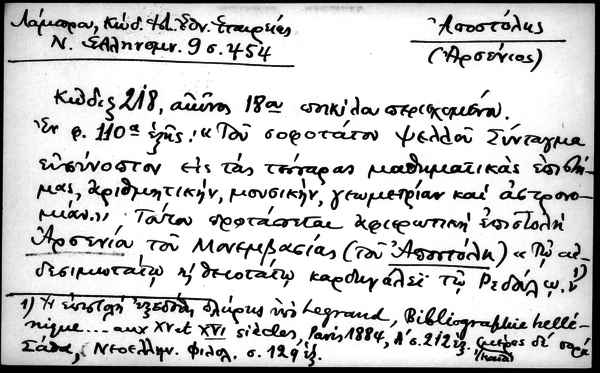 Λάμπρου, Κώδ. Ἱστ. Ἐθν. Ἑταιρείας
Ν. Ἑλληνομν. 9 σ. 454
Ἀποστόλης
(Ἀρσένιος)
Κῶδιξ 218, αἰῶνος 18ου ποικίλου περιεχομένου.
Ἐν φ. 110α ἑξῆς: «Τοῦ σοφωτάτου Ψελλοῦ Σύνταγμα
εὐσύνοπτον εἰς τὰς τέσσαρας μαθηματικὰς ἐπιστή-
μας, ἀριθμητικήν, μουσικήν, γεωμετρίαν καὶ ἀστρονο-
μίαν.» Τούτου προτάσσεται ἀφιερωτικὴ ἐπιστολὴ
Ἀρσενίου τοῦ Μονεμβασίας (τοῦ Ἀποστόλη) «Τῷ αἰ-
δεσιμωτάτῳ καὶ θειοτάτῳ καρδηνάλεϊ τῷ Ρεδόλφῳ.» 1)
1) Ἡ ἐπιστολὴ ἐξεδόθη πλήρης ὑπὸ Legrand, Bibliographie hellé-
nique... aux XV et XVI siècles, Paris 1884, Α΄ σ. 212 ἑξ. μέρος δὲ παρὰ
Σάθα, Νεοελλην. φιλολ. σ. 129 ἑξ.